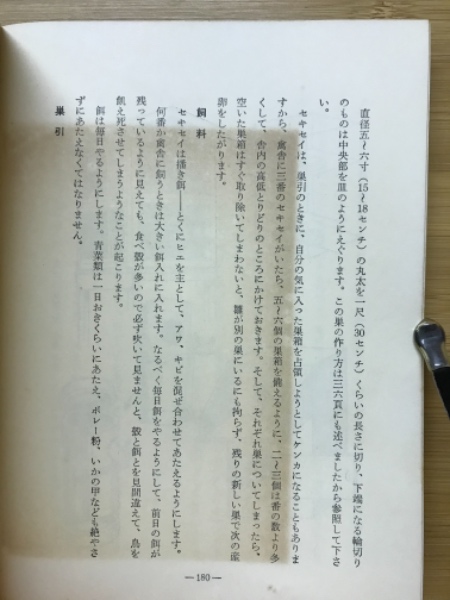 直径五〜六寸（15〜18センチ）の丸太を一尺（30センチ）くらいの長さに切り、下端になる輪切り
のものは中央部を皿のようにえぐります。この巣の作り方は三六頁にも述べましたから参照して下さ
い。
セキセイは、巣引のときに、自分の気に入った巣箱を占領しようとしてケンカになることもありま
すから、禽舎に三番のセキセイがいたら、五〜六個の巣箱を備えるように、二〜三個は番の数より多
くして、舎内の高低とりどりのところにかけておきます。そして、それぞれ巣についてしまったら、
空いた巣箱はすぐ取り除いてしまわないと、雛が別の巣にいるにも拘らず、残りの新しい巣で次の産
卵をしたがります。
飼料
セキセイは撒き餌――とくにヒエを主として、アワ、キビを混ぜ合わせてあたえるようにします。
何番か禽舎に飼うときは大きい餌入れに入れます。なるべく毎日餌をやるようにして、前日の餌が
残っているように見えても、食べ殻が多いので必ず吹いて見ませんと、殻と餌とを見間違えて、鳥を
餓え死させてしまうようなことが起こります。
餌は毎日やるようにします。青菜類は一日おきくらいにあたえ、ボレー粉、いかの甲なども絶やさ
ずにあたえなくてはなりません。
巣引
―180―